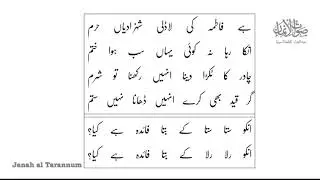 ہے فاطمہ کی لاڈلی شہزادیاں حرم
انکا رہا نہ کوئی یہاں سب ہوا ختم
چادر کا ٹکڑا دینا انہیں رکھنا تو شرم
گر قید بھی کرے انہیں ڈھانا نہیں ستم
انکو ستا ستا کے بتا فائدہ ہے کیا؟
انکو رلا رلا کے بتا فائدہ ہے کیا؟
Janah al Tarannum